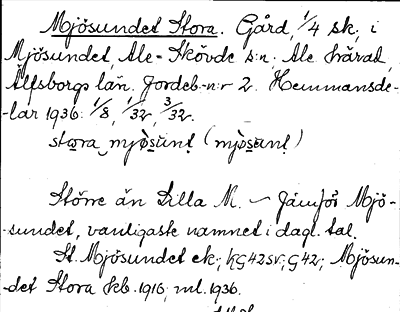 Mjösundet Stora. Gård, 1/4 sk., i
Mjösundet, Ale-Skövde s:n. Ale härad,
Älfsborgs län. Jordeb.-n:r 2. Hemmansde-
-lar 1936: 1/8, 1/32, 3/32.
Större än Lilla M. – Jämför Mjö-
-sundet, vanligaste namnet i dagl. tal.
St. Mjösundet ek; KG42sv; G42; Mjösun-
-det Stora kb. 1916; ml. 1936.